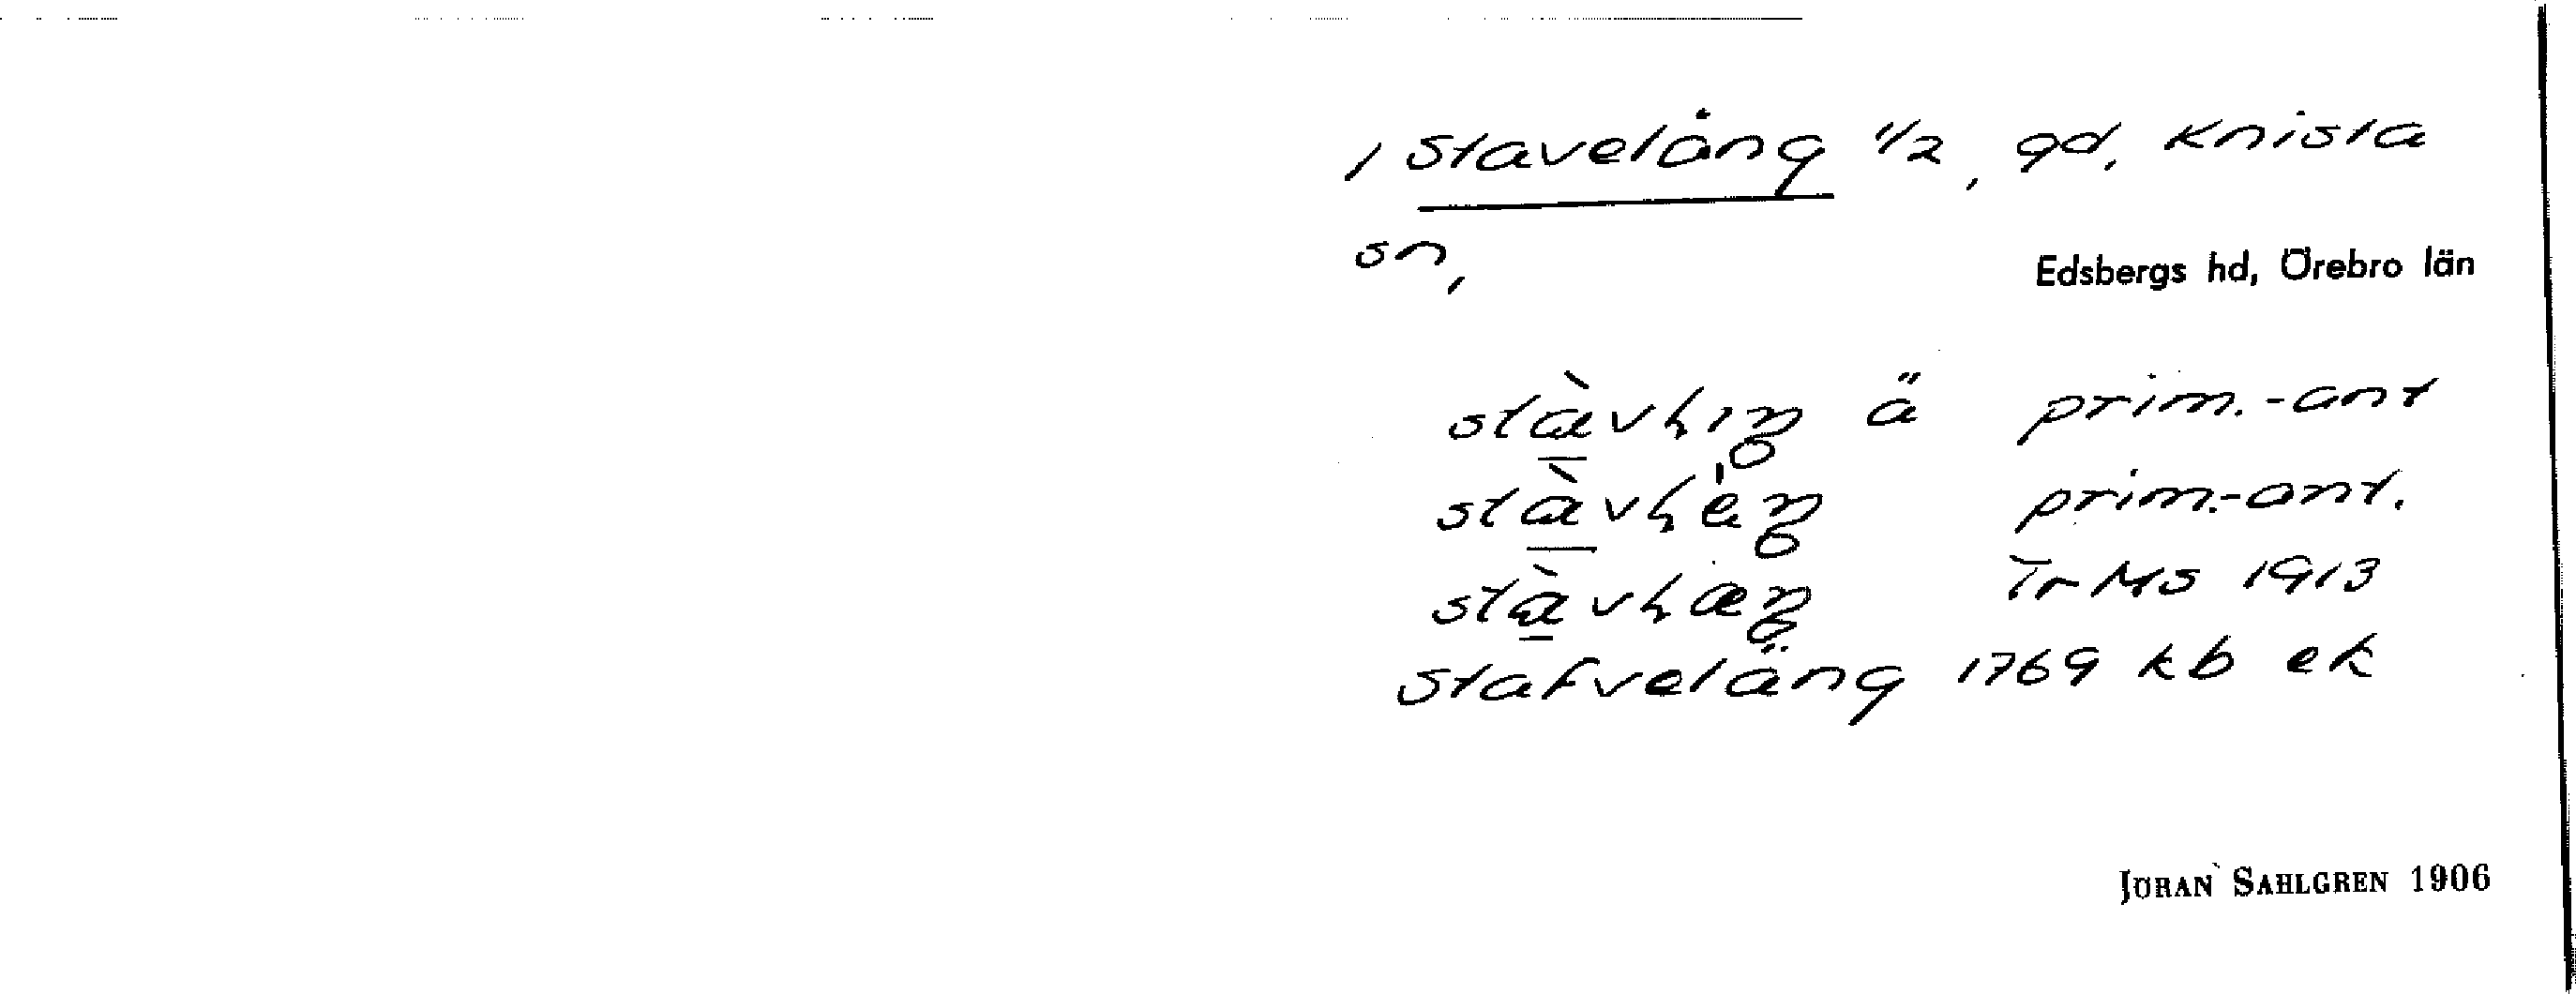 1 Stavelång 1/2, gd, Knista
sn,
Edsbergs hd, Örebro län
ä prim.-ant
prim.-ant.
Tr Ms 1913
Stafveläng 1769 kb ek
JÖRAN SAHLGREN 1906